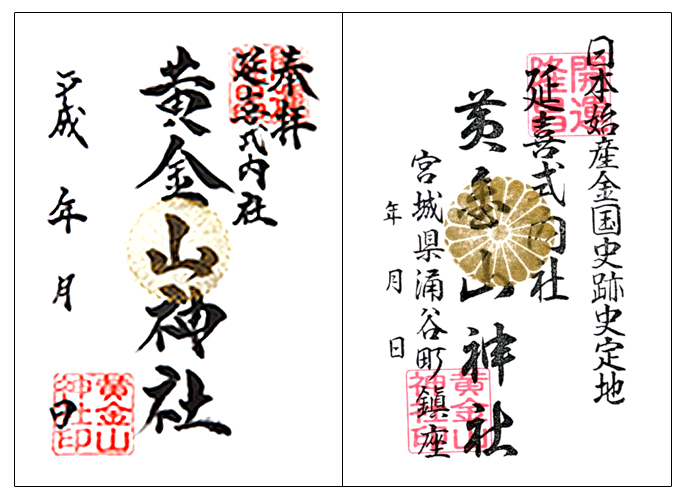 奉拝
延喜式内社
黄金山神社
平成 年 月 日
黄金山
神社印
日本始産金国史跡史定地
開運
隆昌
延喜式内社
黄金山神社
宮城県涌谷町鎮座
年 月 日
黄金山
神社印